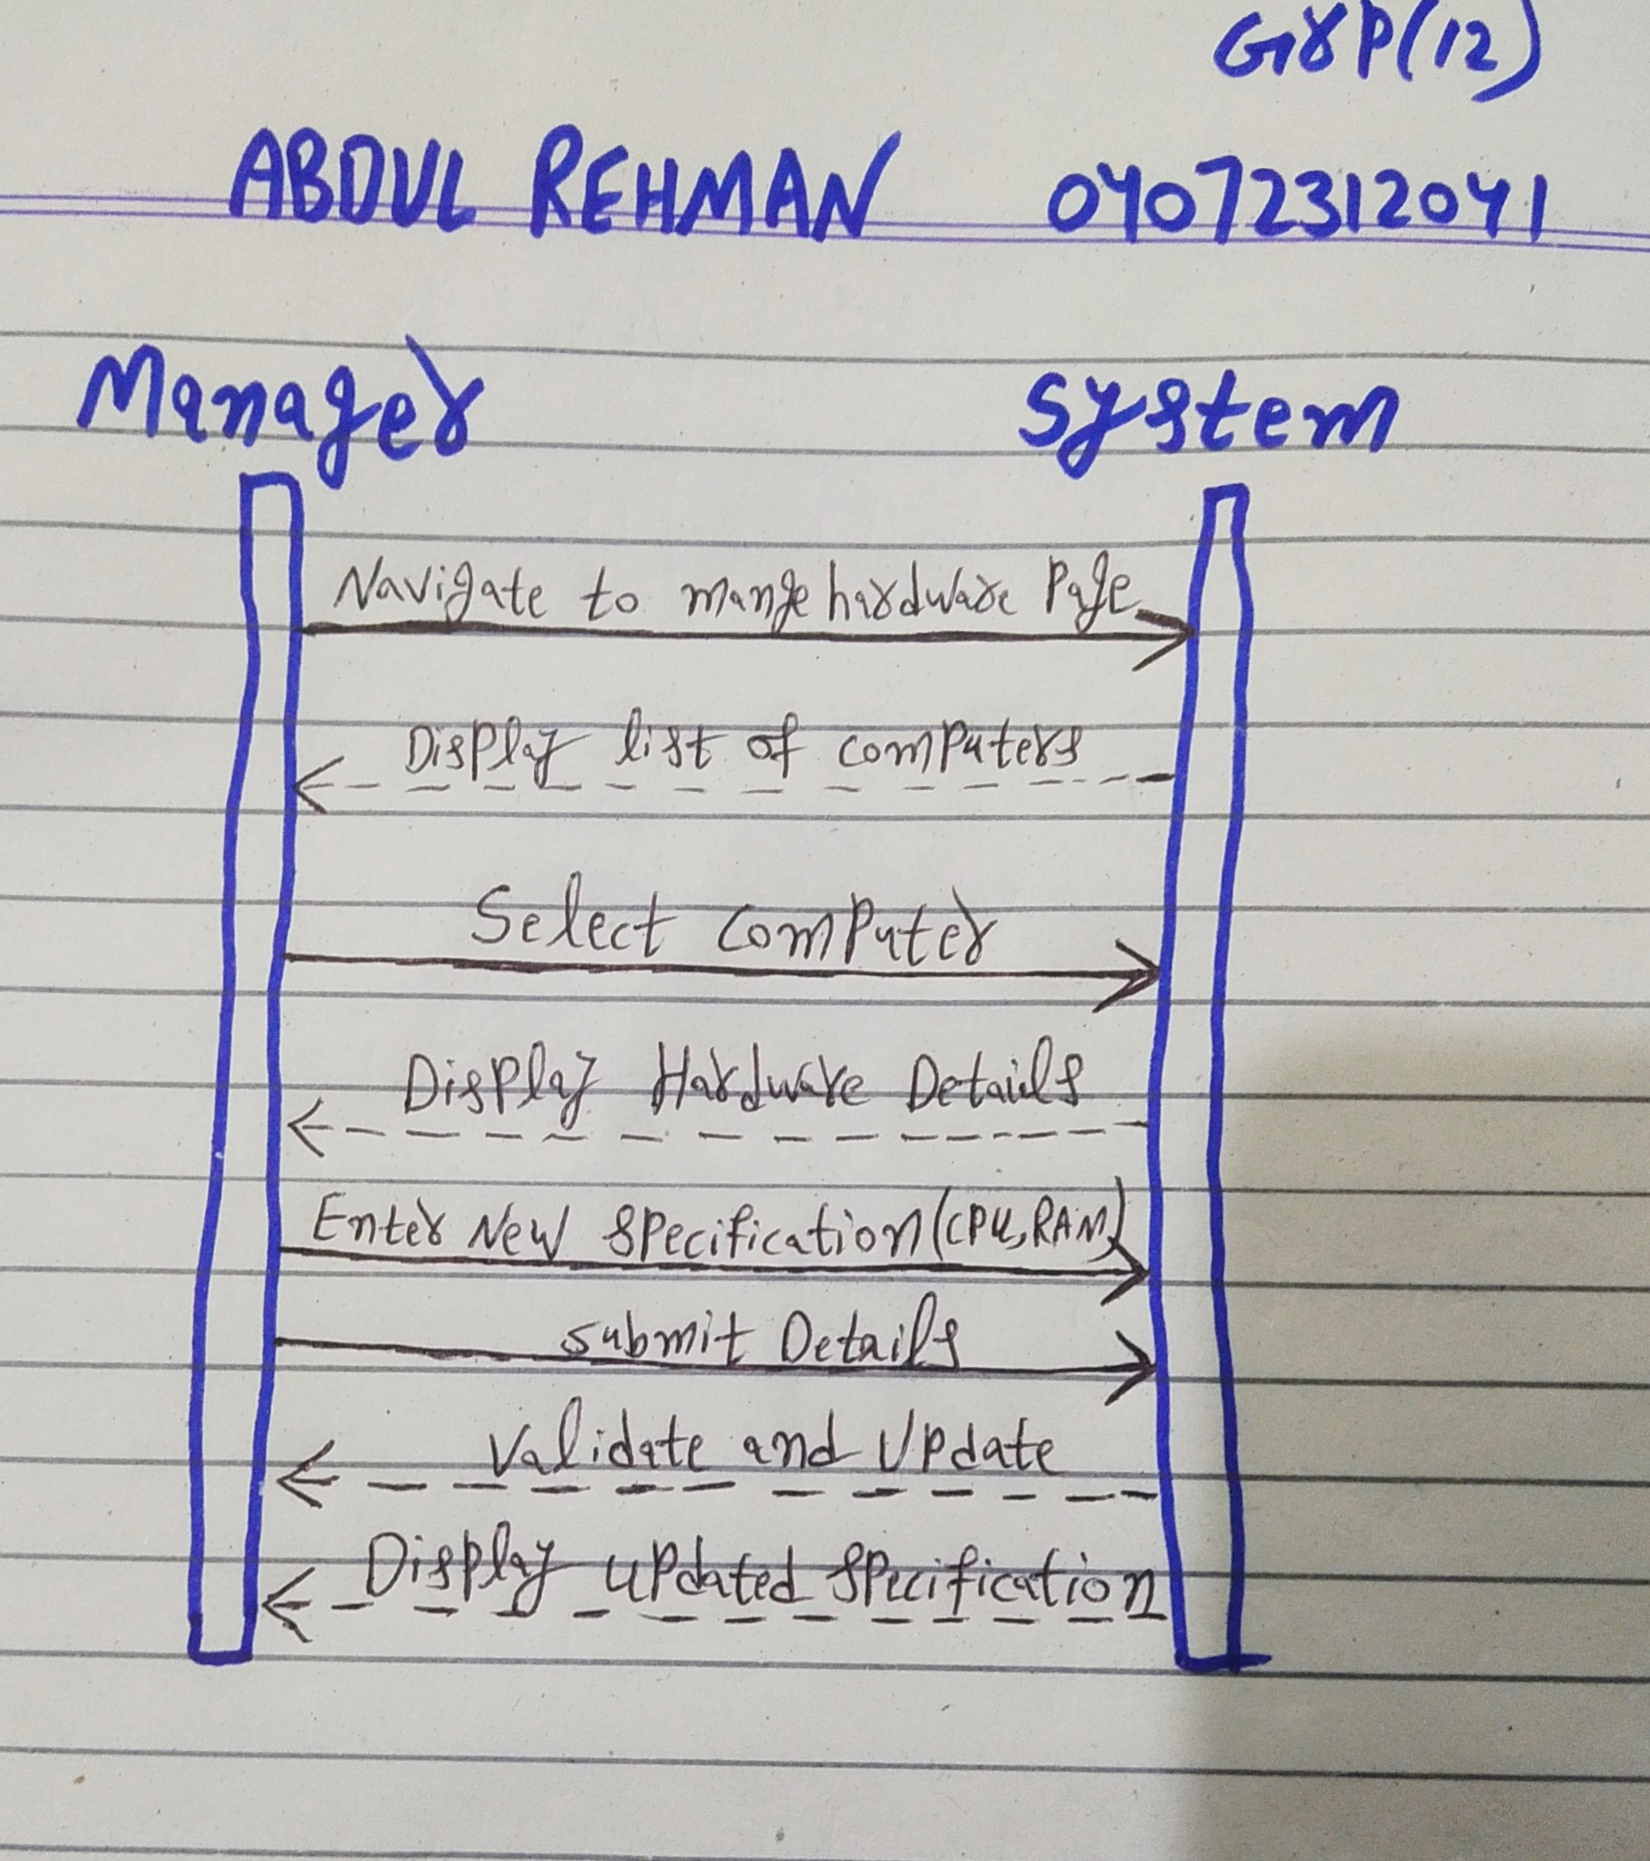 Grp(12)
ABDUL REHMAN 04072312041
Manager System
Navigate to mange hardware Page
Display list of computers
Select Computer
Display Hardware Details
Enter New Specification (CPU, RAM)
Submit Details
Validate and Update
Display updated Specification